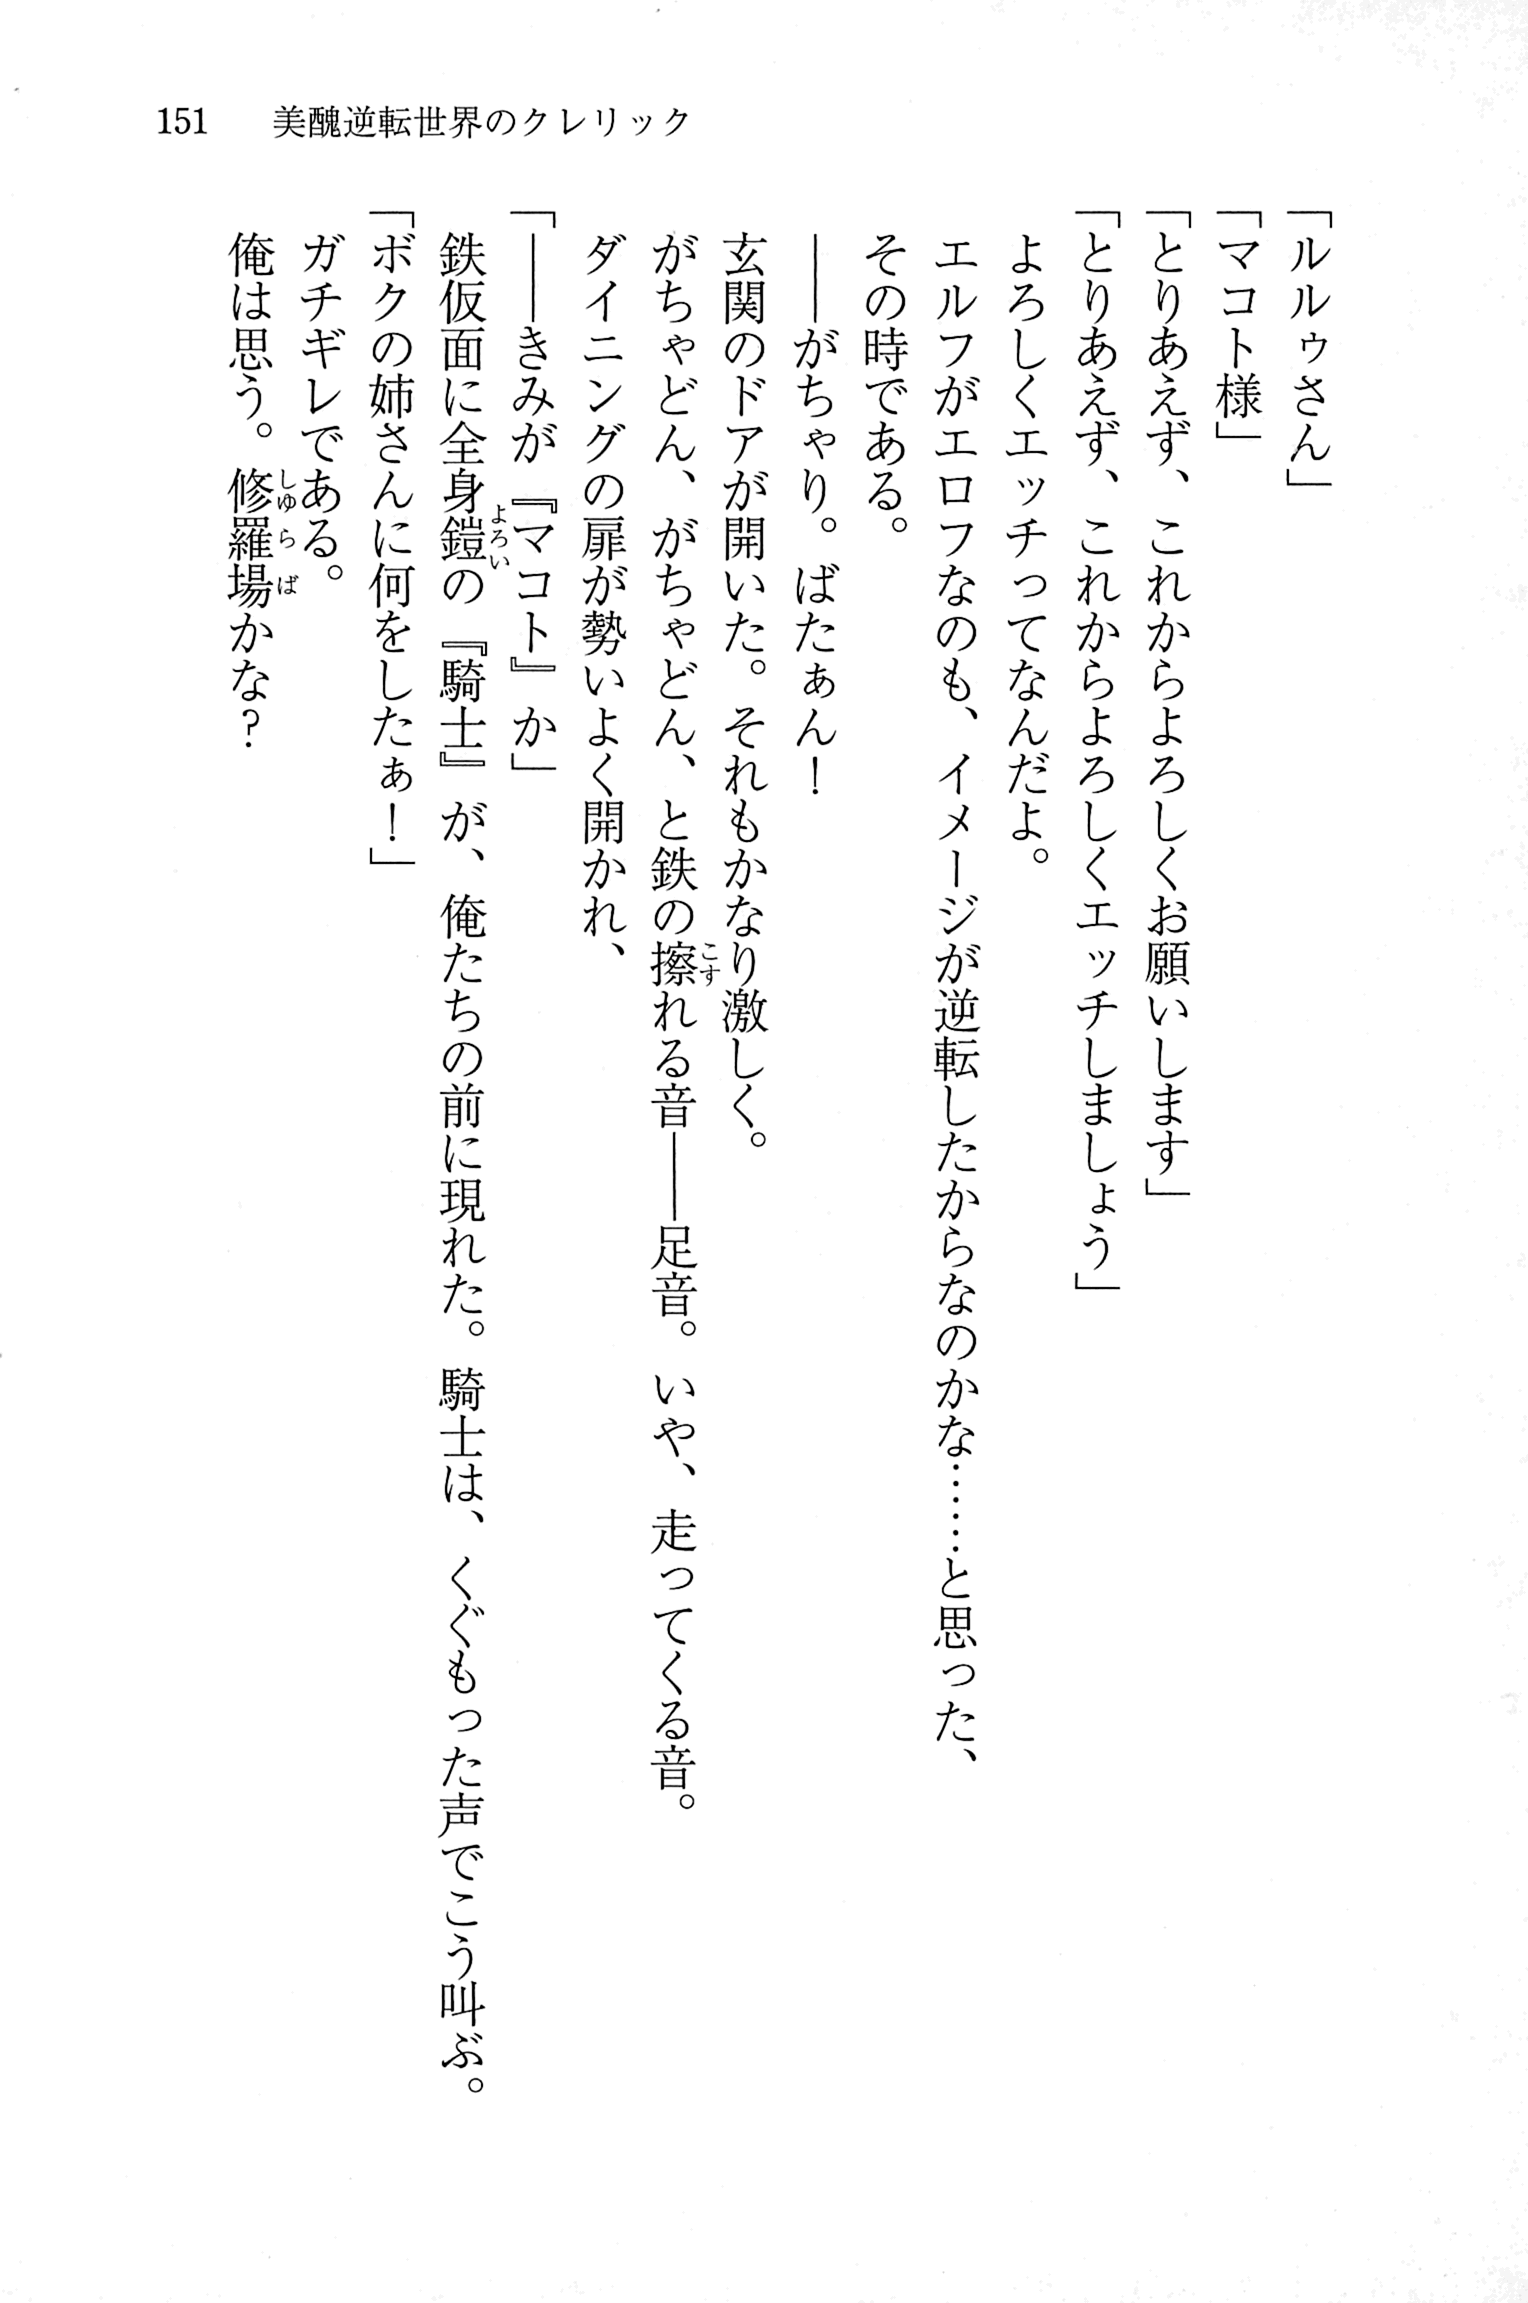 151　美醜逆転世界のクレリック
「ルルゥさん」
「マコト様」
「とりあえず、これからよろしくお願いします」
「とりあえず、これからよろしくエッチしましょう」
よろしくエッチってなんだよ。
エルフがエロフなのも、イメージが逆転したからなのかな……と思った、
その時である。
――がちゃり。ばたぁん！
玄関のドアが開いた。それもかなり激しく。
がちゃどん、がちゃどん、と鉄の擦れる音――足音。いや、走ってくる音。
こす
ダイニングの扉が勢いよく開かれ、
「――きみが『マコト』か」
鉄仮面に全身鎧の『騎士』が、俺たちの前に現れた。騎士は、くぐもった声でこう叫ぶ。
よろい
「ボクの姉さんに何をしたぁ！」
ガチギレである。
俺は思う。修羅場かな？
しゆらば